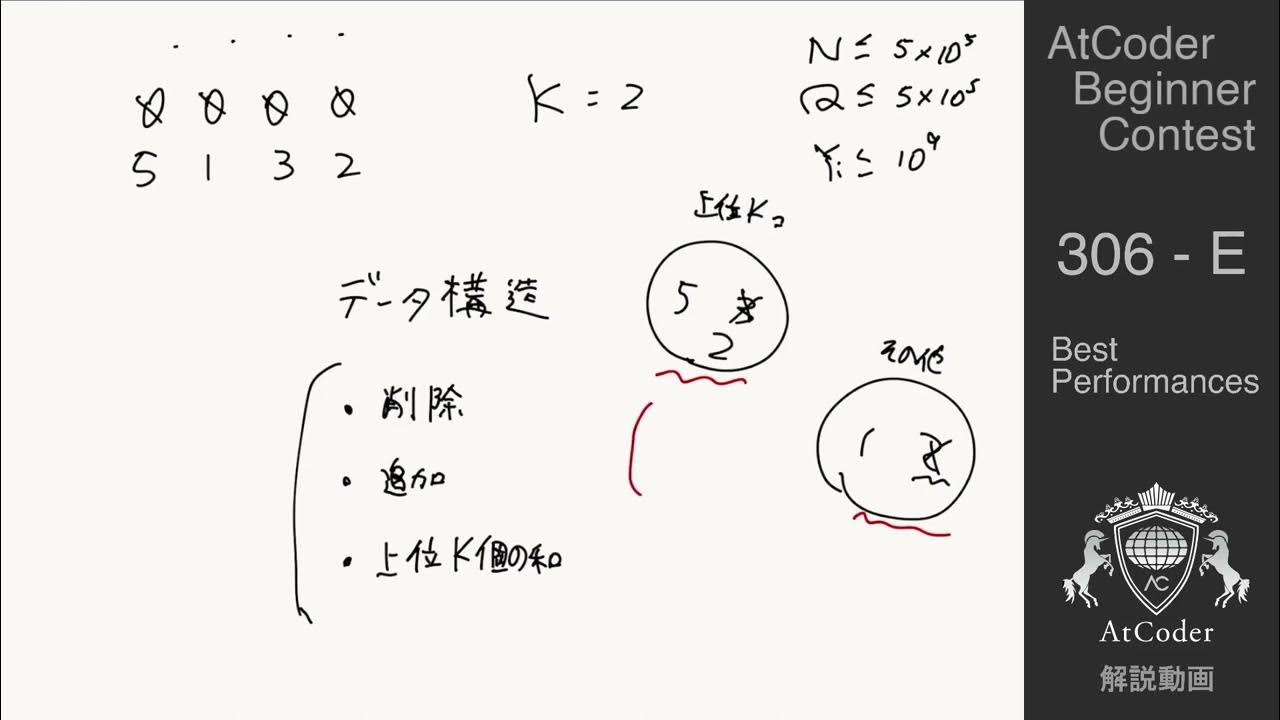 0 0 0 0
5 1 3 2
K = 2
N ≤ 5×10⁵
Q ≤ 5×10⁵
Yᵢ ≤ 10⁹
上位Kコ
5
2
その他
1
データ構造
・ 削除
・ 追加
・ 上位K個の和
AtCoder
Beginner
Contest
306 - E
Best
Performances
AC
AtCoder
解説動画